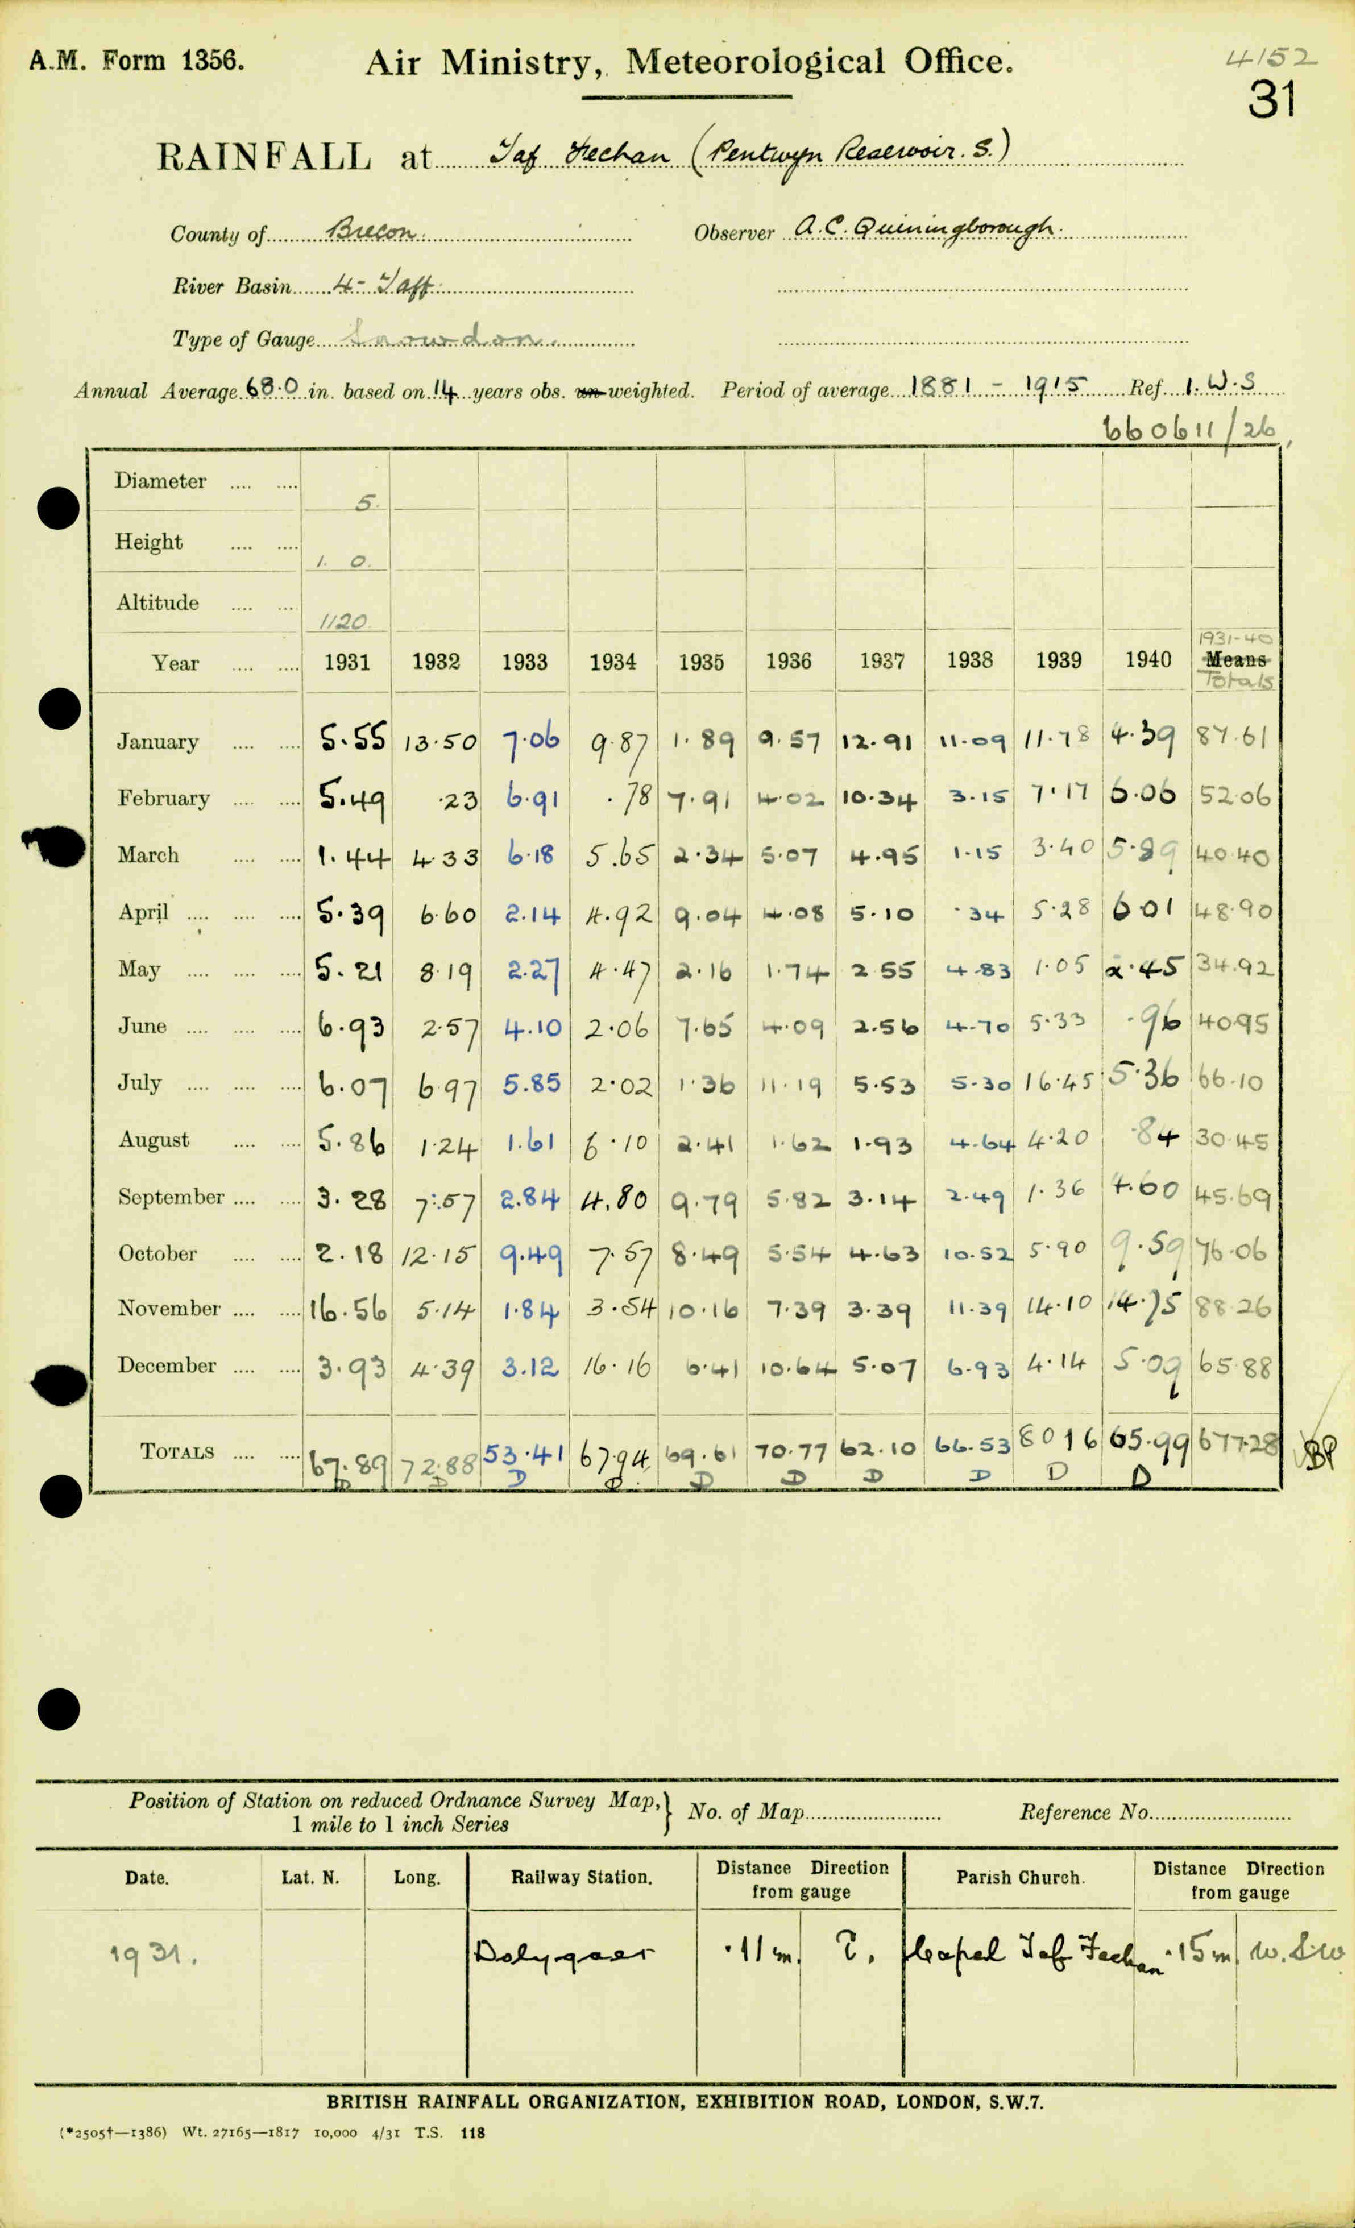 A.M. Form 1356. Air Ministry, Meteorological Office. 4152
31
RAINFALL at Taf Fechan (Pentwyn Reservoir. S.)
County of Brecon. Observer A.C. Quiningborough.
River Basin 4 - Taff
Type of Gauge Snowdon.
Annual Average 68.0 in. based on 14 years obs. un-weighted. Period of average 1881 - 1915 Ref. I.W.S
660611/26
Diameter .... .... 5.
Height .... .... 1. 0.
Altitude .... .... 1120
1931-40
Year .... .... 1931 1932 1933 1934 1935 1936 1937 1938 1939 1940 Means
Totals
January .... .... 5.55 13.50 7.06 9.87 1.89 9.57 12.91 11.09 11.78 4.39 87.61
February .... .... 5.49 .23 6.91 .78 7.91 4.02 10.34 3.15 7.17 6.06 52.06
March .... .... 1.44 4.33 6.18 5.65 2.34 5.07 4.95 1.15 3.40 5.89 40.40
April .... .... .... 5.39 6.60 2.14 4.92 9.04 4.08 5.10 .34 5.28 6.01 48.90
May .... .... .... 5.21 8.19 2.27 4.47 2.16 1.74 2.55 4.83 1.05 2.45 34.92
June .... .... .... 6.93 2.57 4.10 2.06 7.65 4.09 2.56 4.70 5.33 .96 40.95
July .... .... .... 6.07 6.97 5.85 2.02 1.36 11.19 5.53 5.30 16.45 5.36 66.10
August .... .... 5.86 1.24 1.61 6.10 2.41 1.62 1.93 4.64 4.20 .84 30.45
September .... .... 3.28 7.57 2.84 4.80 9.79 5.82 3.14 2.49 1.36 4.60 45.69
October .... .... 2.18 12.15 9.49 7.57 8.49 5.54 4.63 10.52 5.90 9.59 76.06
November .... .... 16.56 5.14 1.84 3.54 10.16 7.39 3.39 11.39 14.10 14.75 88.26
December .... .... 3.93 4.39 3.12 16.16 6.41 10.64 5.07 6.93 4.14 5.09 65.88
TOTALS .... .... 67.89 72.88 53.41 67.94 69.61 70.77 62.10 66.53 80.16 65.99 677.28 BP
D D D D D D D D D D
Position of Station on reduced Ordnance Survey Map, } No. of Map Reference No.
1 mile to 1 inch Series
Date. Lat. N. Long. Railway Station. Distance Direction from gauge Parish Church. Distance Direction from gauge
1931. Dolygaer .11 m. Capel Taf Fechan .15 m. W.S.W
BRITISH RAINFALL ORGANIZATION, EXHIBITION ROAD, LONDON, S.W.7.
(*2505†—1386) Wt. 27165—1817 10,000 4/31 T.S. 118